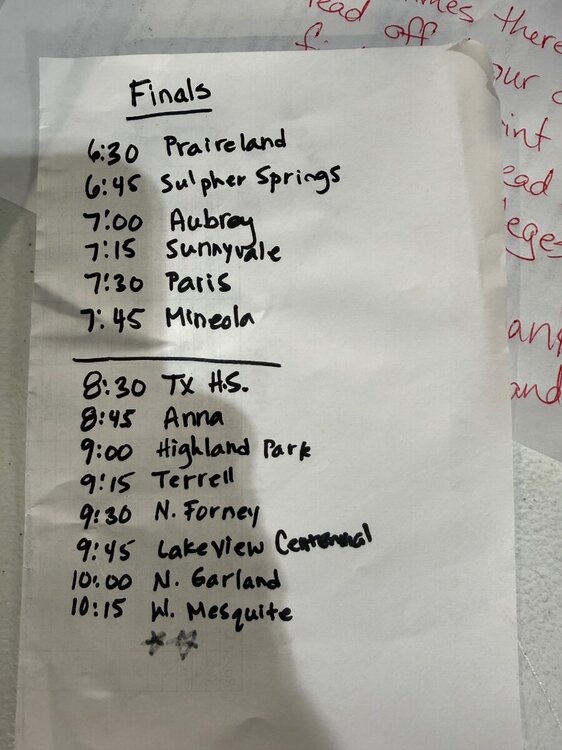 Finals
6:30 Praireland
6:45 Sulpher Springs
7:00 Aubrey
7:15 Sunnyvale
7:30 Paris
7:45 Mineola
8:30 TX H.S.
8:45 Anna
9:00 Highland Park
9:15 Terrell
9:30 N. Forney
9:45 Lakeview Centennial
10:00 N. Garland
10:15 W. Mesquite
there
off